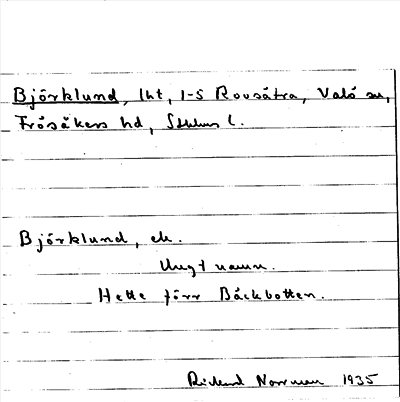 Björklund, lht, 1-5 Rovsätra, Valö sn,
Frösåkers hd, Sthlms l.
Björklund, ek.
Ungt namn.
Hette förr Bäckbotten.
Rickard Norrman 1935